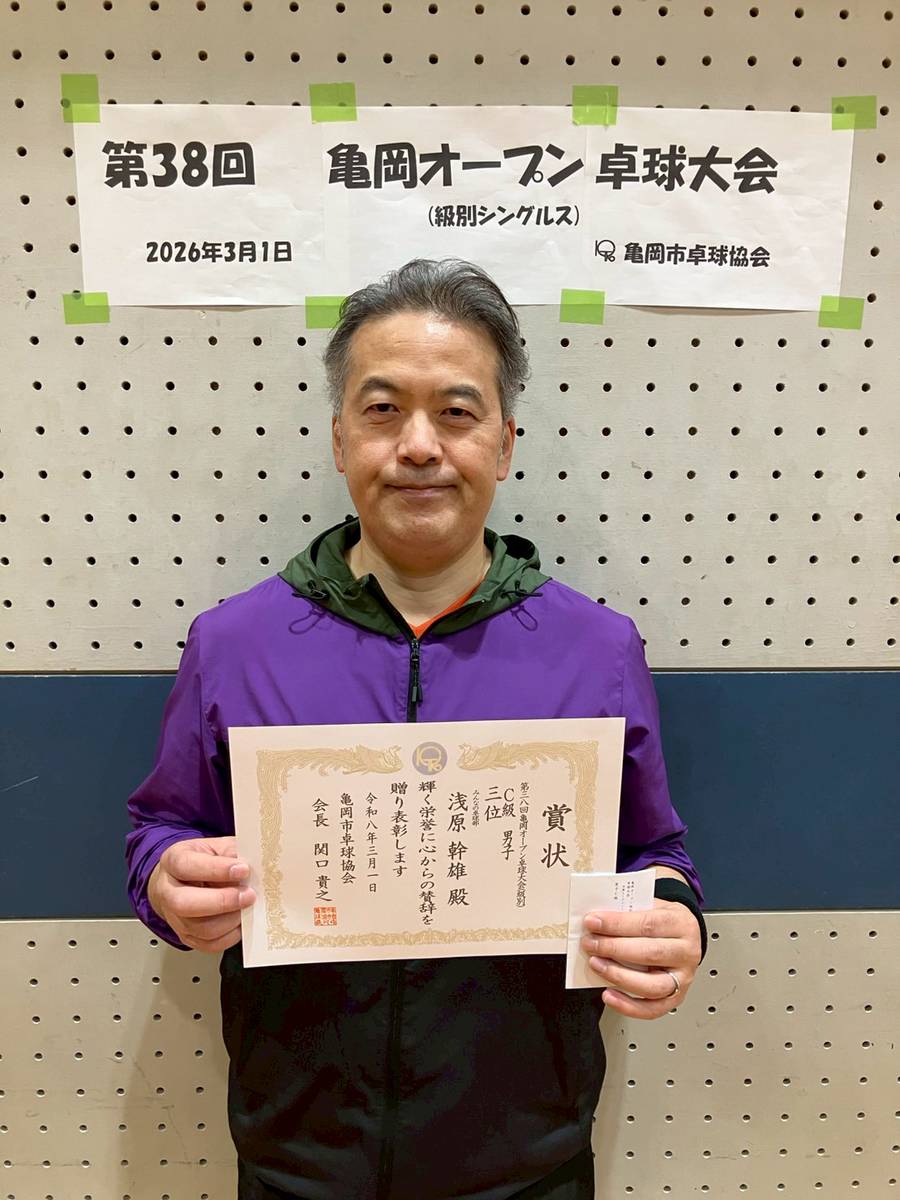 第38回 亀岡オープン 卓球大会
(級別シングルス)
2026年3月1日
亀岡市卓球協会
賞状
第三八回亀岡オープン卓球大会(級別)
C級 男子
三位
みんなの卓球部
浅原 幹雄 殿
輝く栄誉に心からの賛辞を
贈り表彰します
令和八年三月一日
亀岡市卓球協会
会長 関口 貴之